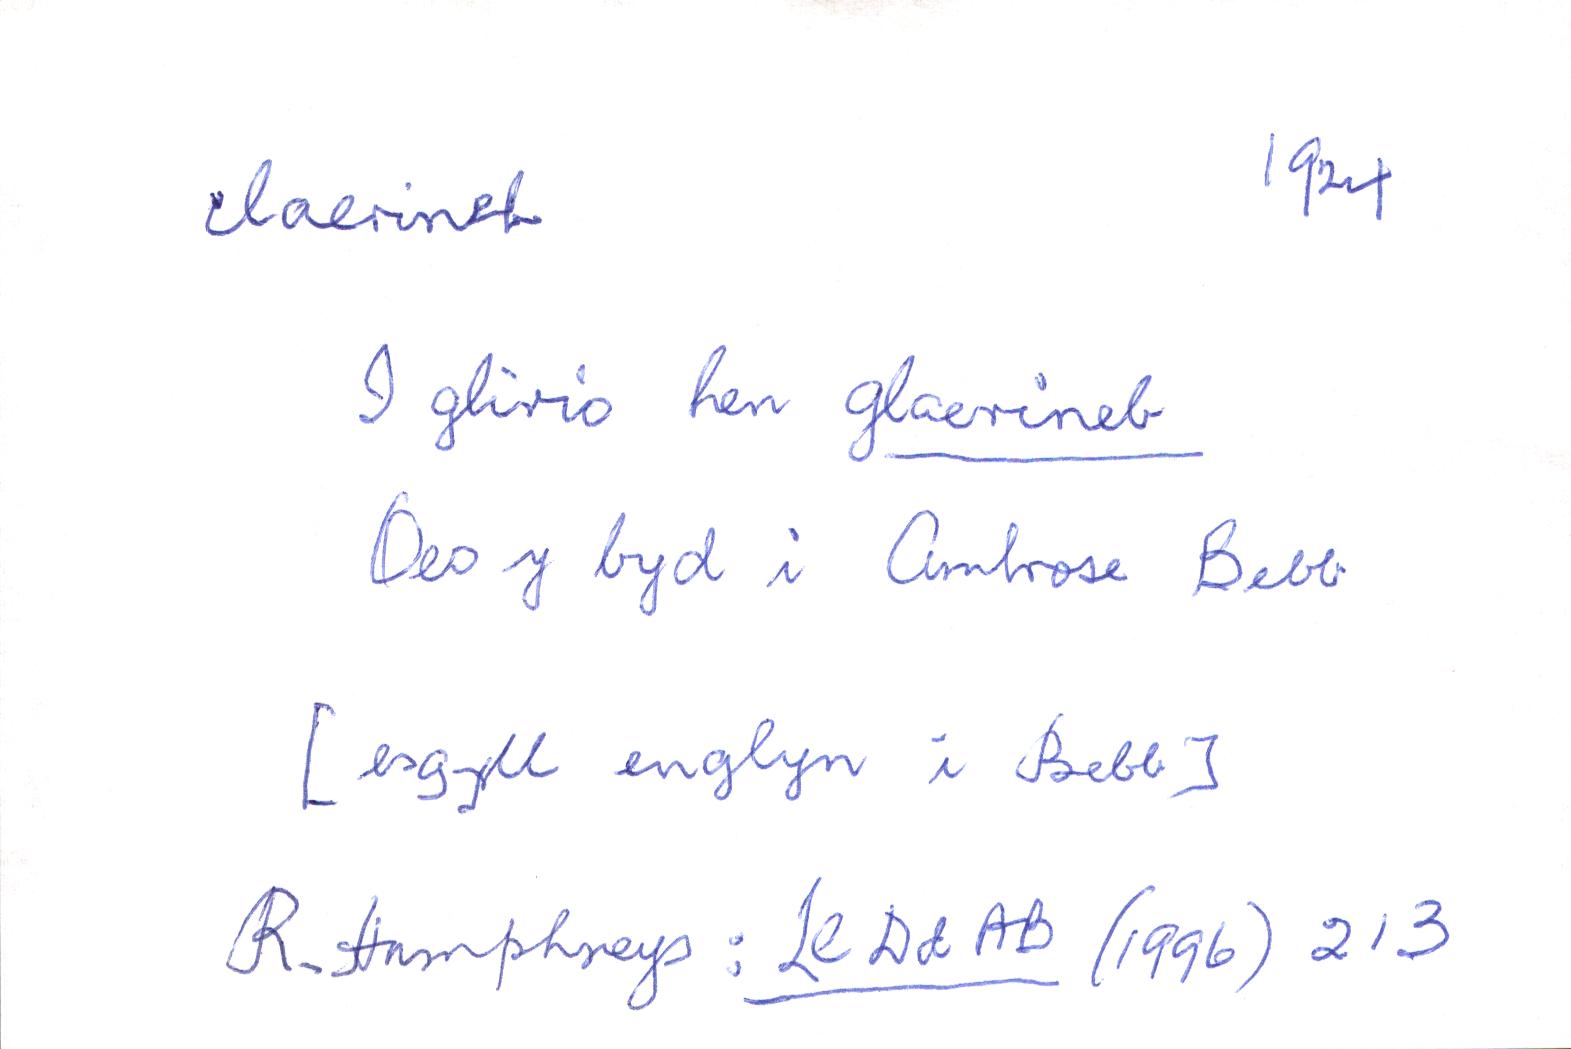 claerineb 1924
I glirio hen glaerineb
Deo y byd i Ambrose Bebb
[esgyll englyn i Bebb]
R. Humphreys: LlC Dd AB (1996) 213